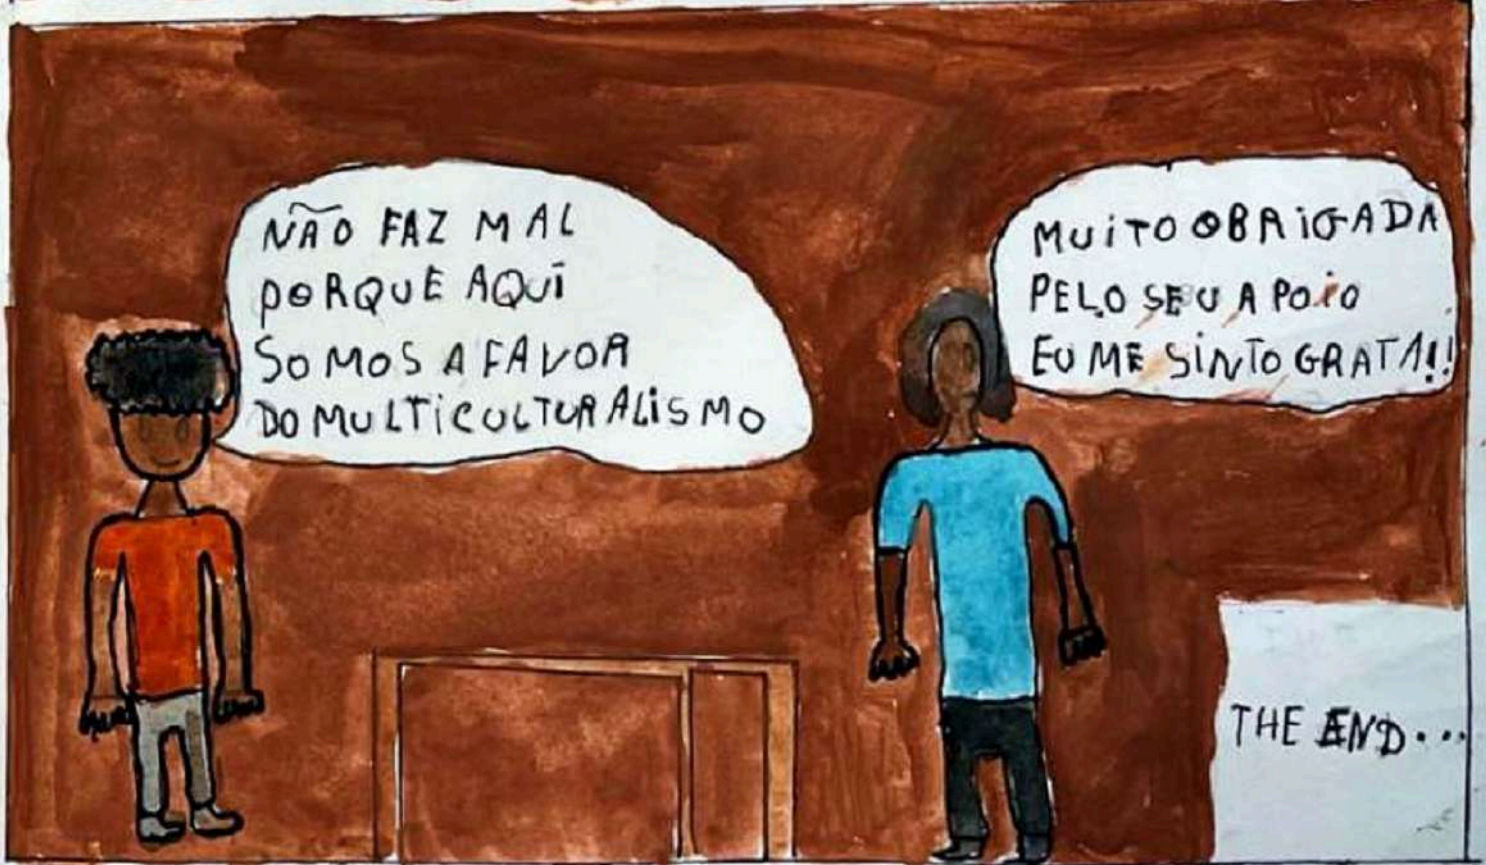 NÃO FAZ MAL
PORQUE AQUI
SOMOS A FAVOR
DO MULTICULTURALISMO
MUITO OBRIGADA
PELO SEU APOIO
EU ME SINTO GRATA!!
THE END...